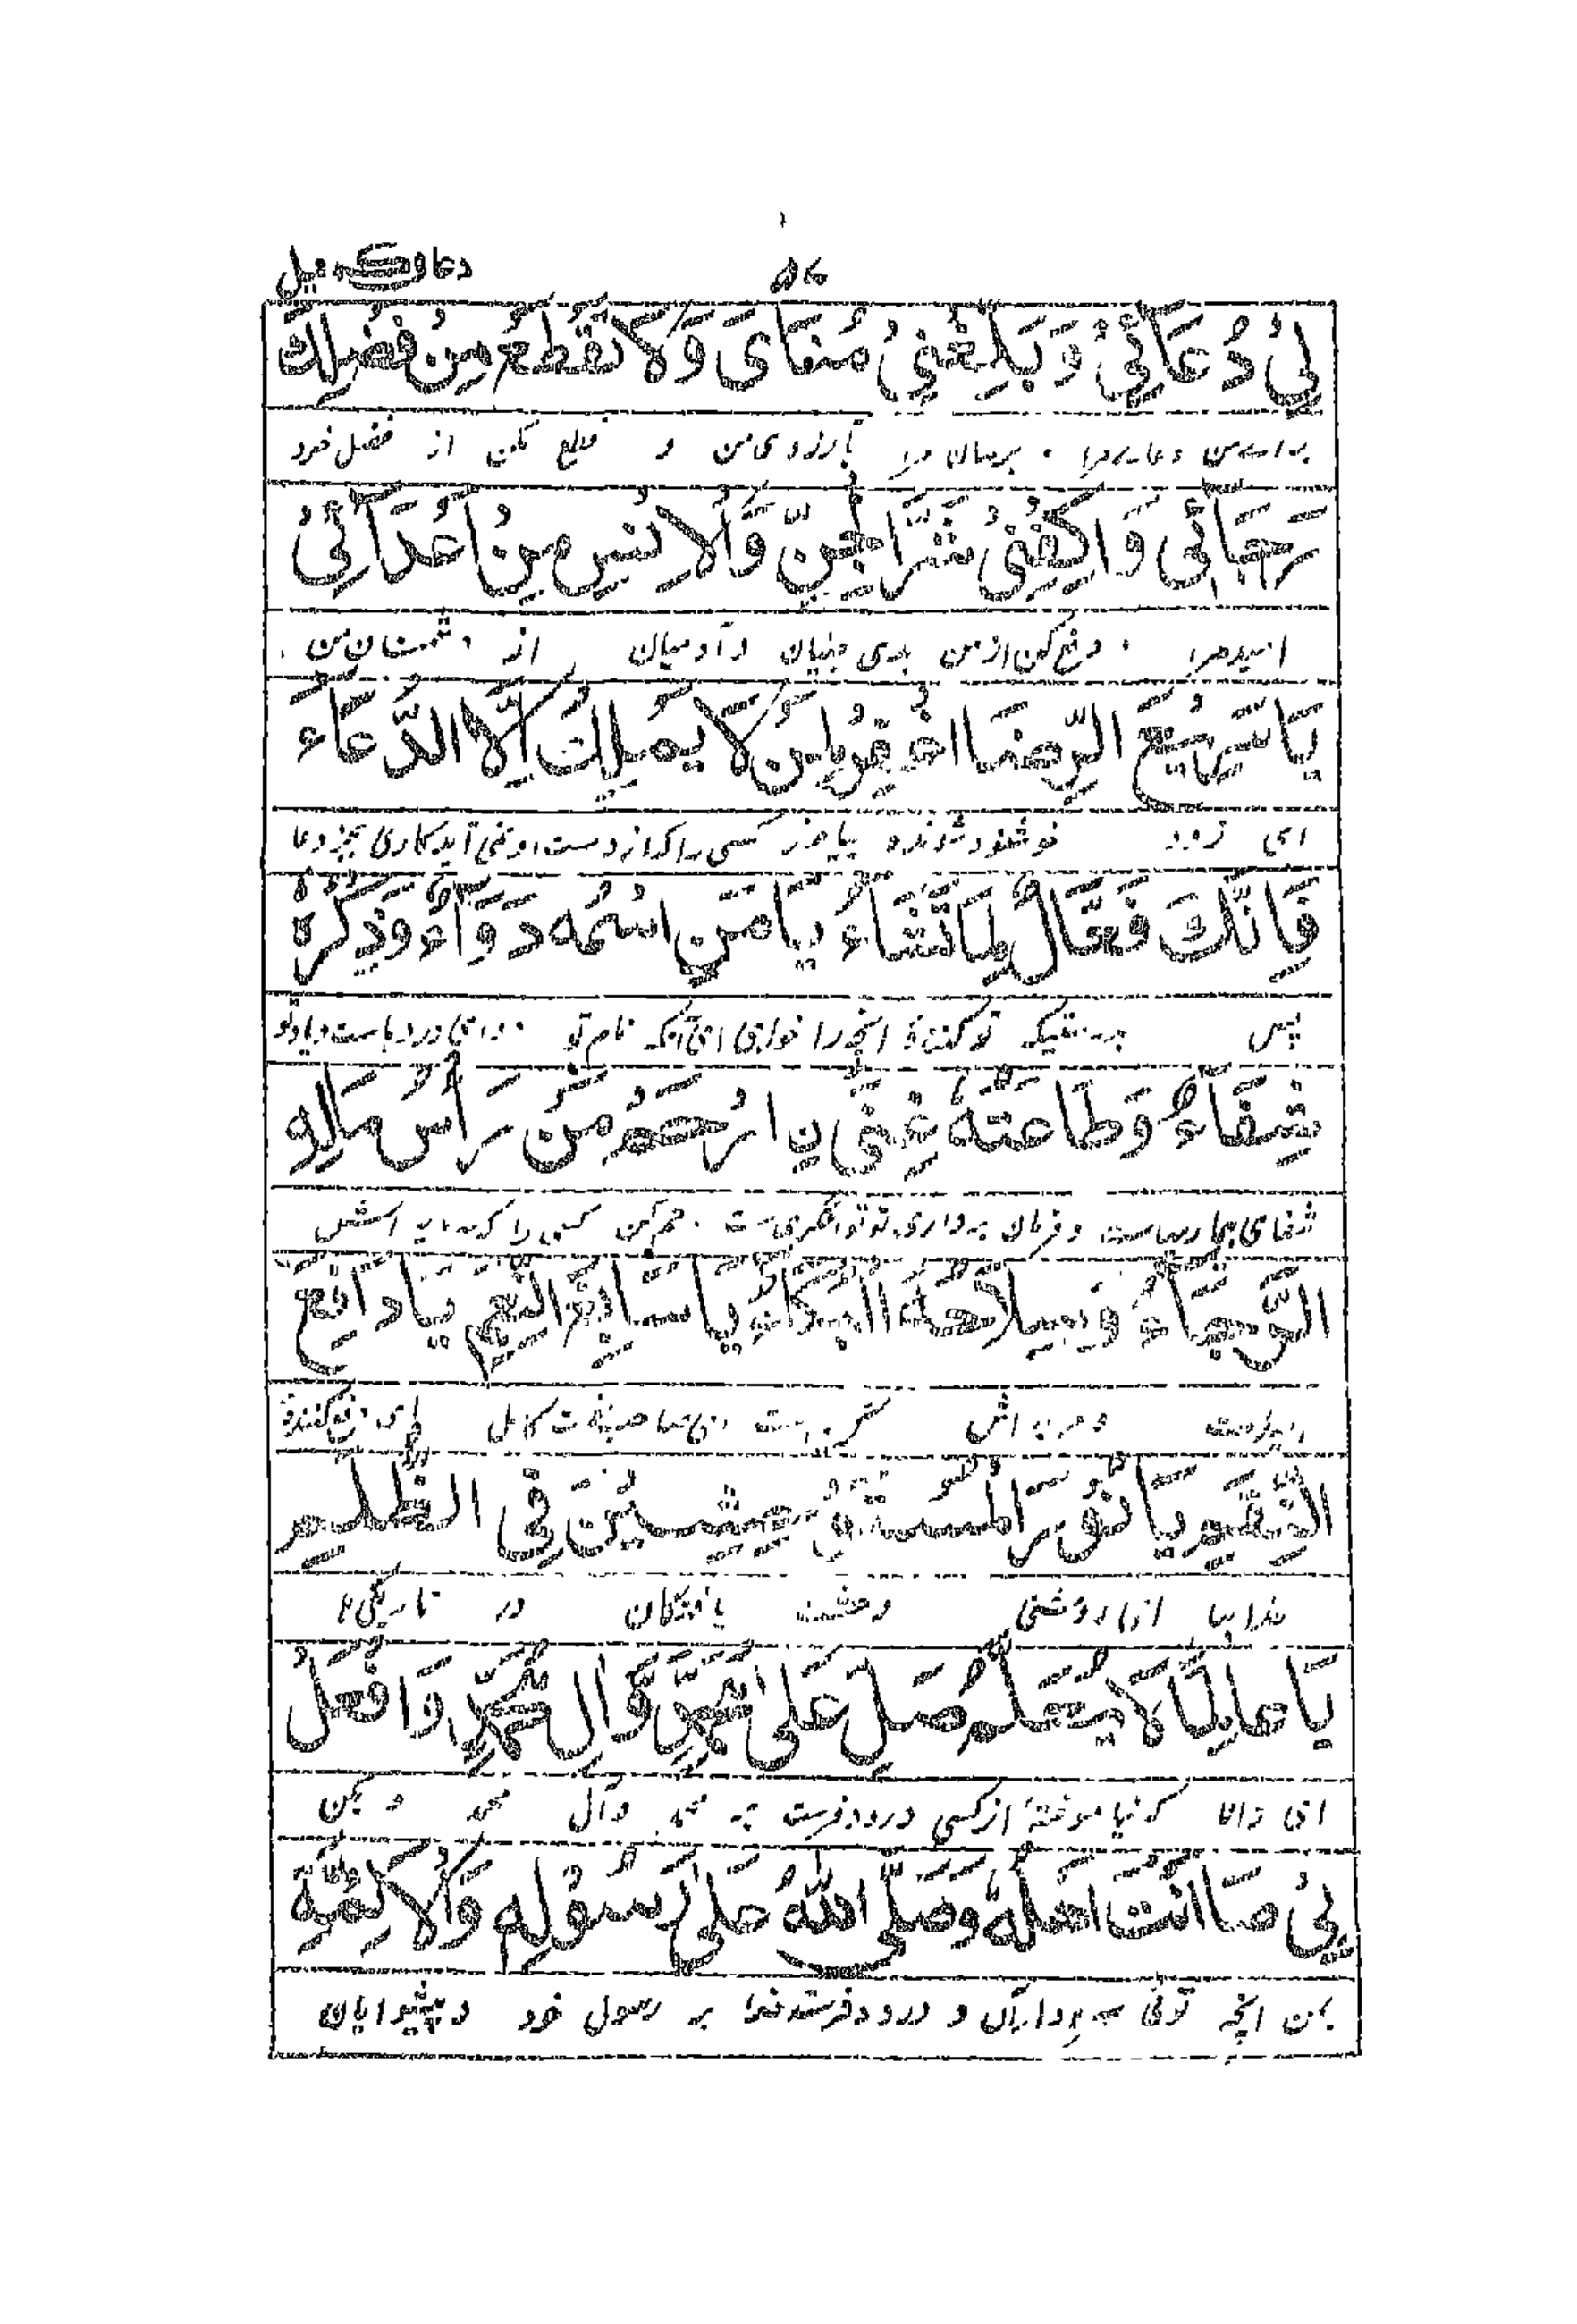 دعاء کمیل
لِیْ دُعَائِیْ وَبَلِّغْنِیْ مُنَایَ وَلَا تَقْطَعْ مِنْ فَضْلِكَ
برای من دعای مرا و برسان مرا بآرزوی من و قطع مکن از فضل خود
رَجَائِی وَاكْفِنِیْ شَرَّ الْجِنِّ وَالْاِنْسِ مِنْ اَعْدَائِیْ
امید مرا و دفع کن از من بدی جنیان و آدمیان از دشمنان من
یَا سَرِیْعَ الرِّضَا اغْفِرْ لِمَنْ لَا یَمْلِكُ اِلَّا الدُّعَاءَ
ای زود خوشنود شونده بیامرز کسی را که از دست او نمی آید کاری بجز دعا
فَاِنَّكَ فَعَّالٌ لِمَا تَشَاءُ یَا مَنِ اسْمُهٗ دَوَاءٌ وَذِكْرُهٗ
پس بدرستیکه تو کنندهٔ آنچه را خواهی ای آنکه نام تو دوای دردهاست و یاد تو
شِفَاءٌ وَطَاعَتُهٗ غِنًی اِرْحَمْ مَنْ رَأْسُ مَالِهِ
شفای بیماریهاست و فرمان برداری تو توانگریست رحم کن کسی را که سرمایه اش
الرَّجَاءُ وَسِلَاحُهُ الْبُكَاءُ یَا سَابِغَ النِّعَمِ یَا دَافِعَ
امیدست و حربه اش گریه است ای صاحب نعمات کامل ای دفع کنندهٔ
النِّقَمِ یَا نُوْرَ الْمُسْتَوْحِشِیْنَ فِی الظُّلَمِ
عذابها ای روشنی وحشت یافتگان در تاریکی ها
یَا عَالِمًا لَا یُعَلَّمُ صَلِّ عَلٰی مُحَمَّدٍ وَّاٰلِ مُحَمَّدٍ وَافْعَلْ
ای دانا که نیاموختهٔ از کسی درود فرست بر محمد و آل محمد و بکن
بِیْ مَا اَنْتَ اَهْلُهٗ وَصَلَّی اللّٰهُ عَلٰی رَسُوْلِهٖ وَالْاَئِمَّةِ
بمن آنچه توئی سزاوار آن و درود فرستد خدا بر رسول خود و پیشوایان